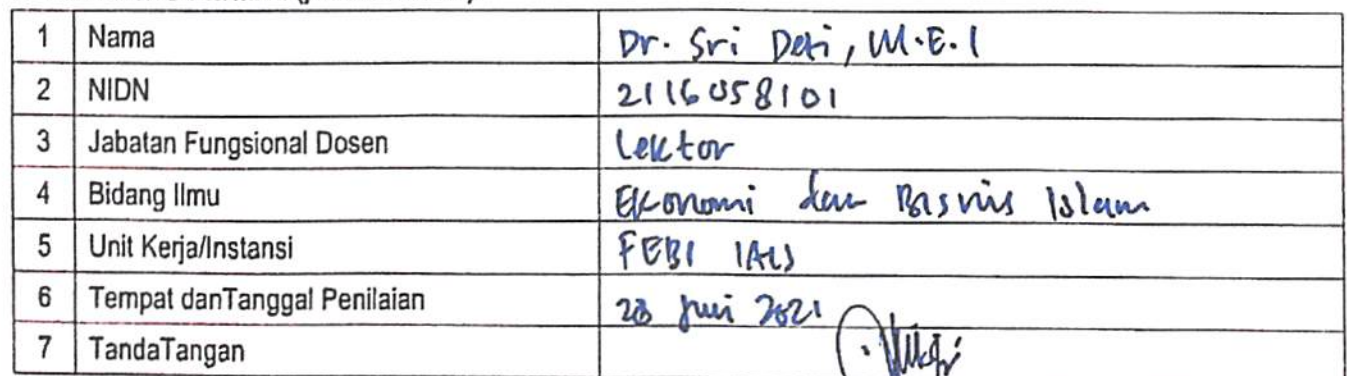 1 Nama Dr. Sri Deti, M.E.I
2 NIDN 2116058101
3 Jabatan Fungsional Dosen Lektor
4 Bidang Ilmu Ekonomi dan Bisnis Islam
5 Unit Kerja/Instansi FEBI IAIS
6 Tempat danTanggal Penilaian 2021
7 TandaTangan